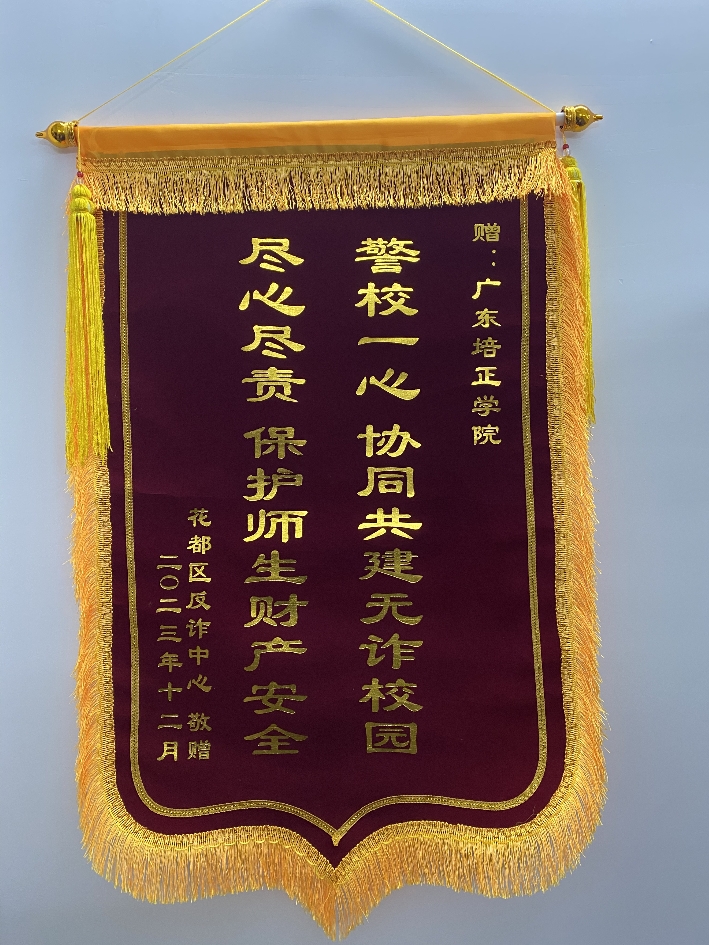 赠：广东培正学院
警校一心 协同共建无诈校园
尽心尽责 保护师生财产安全
花都区反诈中心 敬赠
二〇二三年十二月